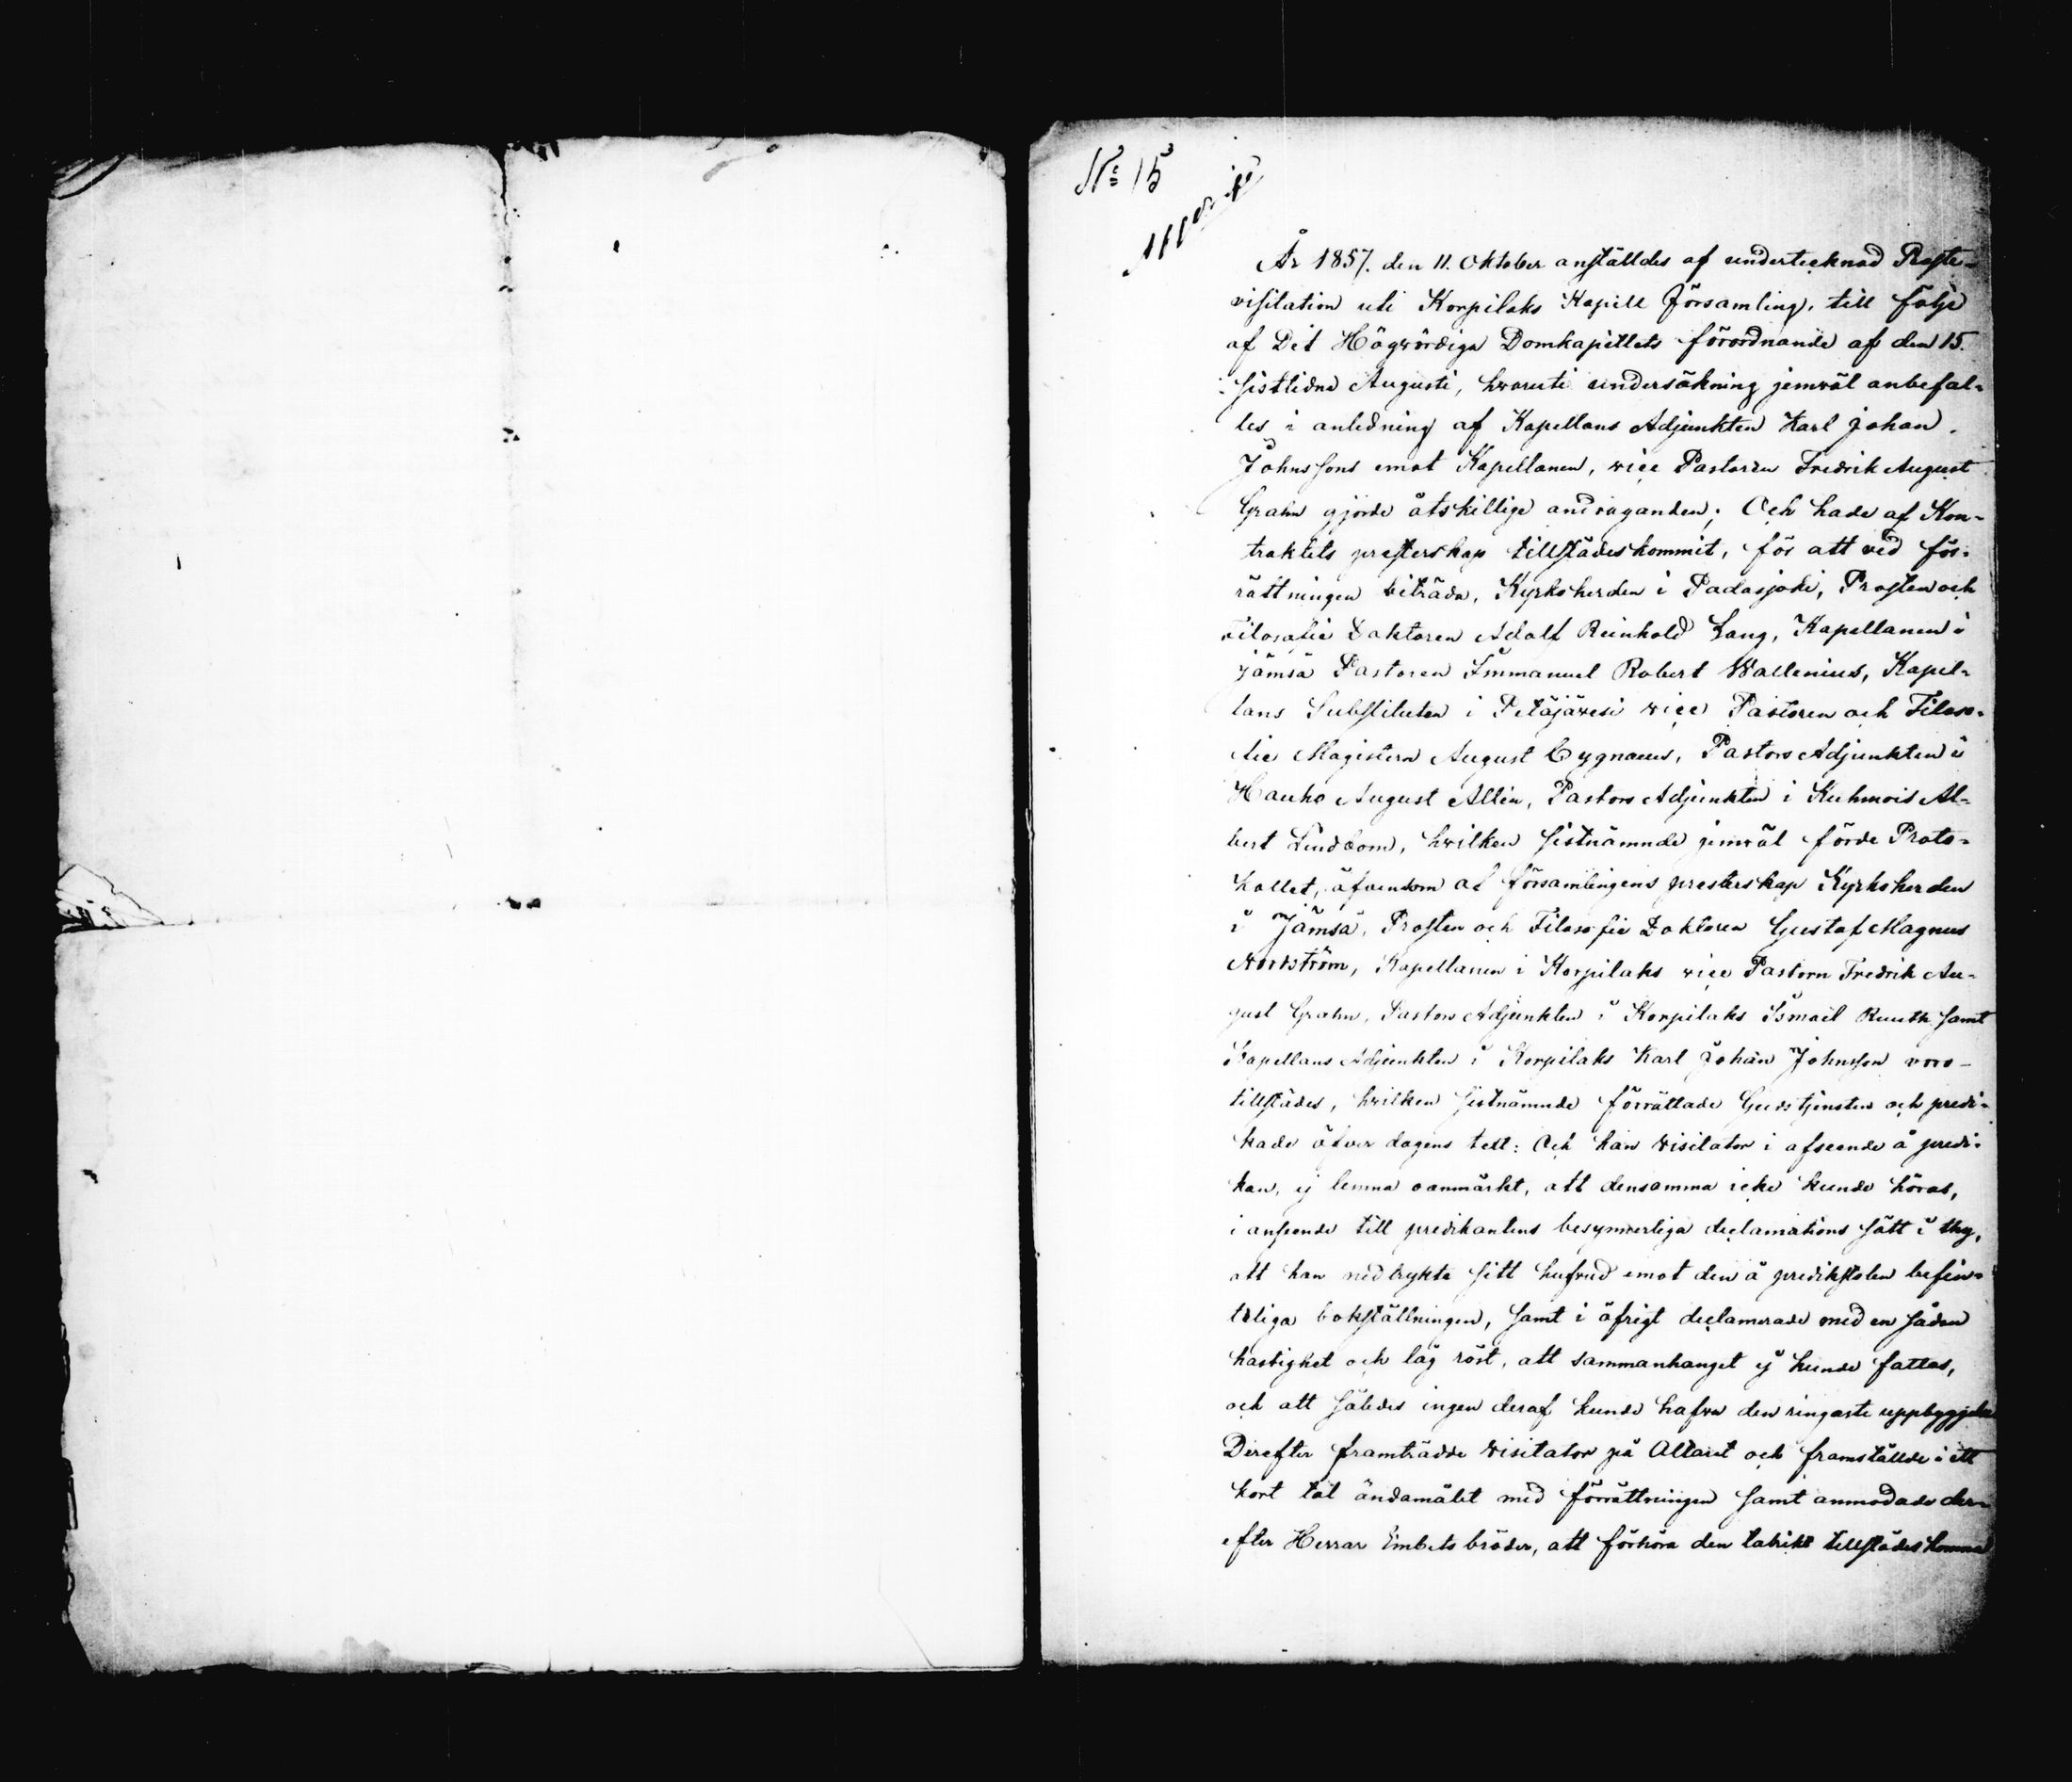 No 15
Afskrift
År 1857. den 11. Oktober anställdes af undertecknad Proste-
visitation uti Korpilaks Kapell Församling, till följe
af Det Högvördiga Domkapitlets förordnande af den 15.
sistlidne Augusti, hvaruti undersökning jemväl anbefal-
les i anledning af Kapellans Adjunkten Karl Johan
Johnssons emot Kapellanen, vice Pastoren Fredrik August
Grahn gjorde åtskillige andraganden; Och hade af Kon-
traktets presterskap tillstädeskommit, för att vid för-
rättningen biträda, Kyrkoherden i Padasjoki, Prosten och
Filosofie Doktoren Adolf Reinhold Lang, Kapellanen i
Jämsä Pastoren Immanuel Robert Wallenius, Kapel-
lans Substituten i Petäjävesi vice Pastoren och Filoso-
fie Magistern August Cygnaeus, Pastors Adjunkten i
Hauho August Allén, Pastors Adjunkten i Kuhmois Al-
bert Lindbom, hvilken sistnämnde jemväl förde Proto-
kollet, äfvensom af församlingens presterskap Kyrkoherden
i Jämsä, Prosten och Filosofie Doktoren Gustaf Magnus
Nordström, Kapellanen i Korpilaks vice Pastorn Fredrik Au-
gust Grahn, Pastors Adjunkten i Korpilaks Ismael Ruuth samt
Kapellans Adjunkten i Korpilaks Karl Johan Johnsson voro
tillstädes, hvilken sistnämnde förrättade Gudstjensten och predi-
kade öfver dagens text: Och kan Visitator i afseende å predi-
kan, ej lemna oanmärkt, att densamma icke kunde höras,
i anseende till predikantens besynnerliga declamations sätt i thy,
att han nedtryckte sitt hufvud emot den å predikstolen befin-
teliga bokställningen, samt i öfrigt declamerade med en sådan
hastighet och låg röst, att sammanhanget ej kunde fattas,
och att således ingen deraf kunde hafva den ringaste uppbyggelse
Derefter framträdde Visitator på Altaret och framställde i ett
kort tal ändamålet med förrättningen samt anmodade der-
efter Herrar Embets bröder, att förhöra den talrikt tillstädes komna